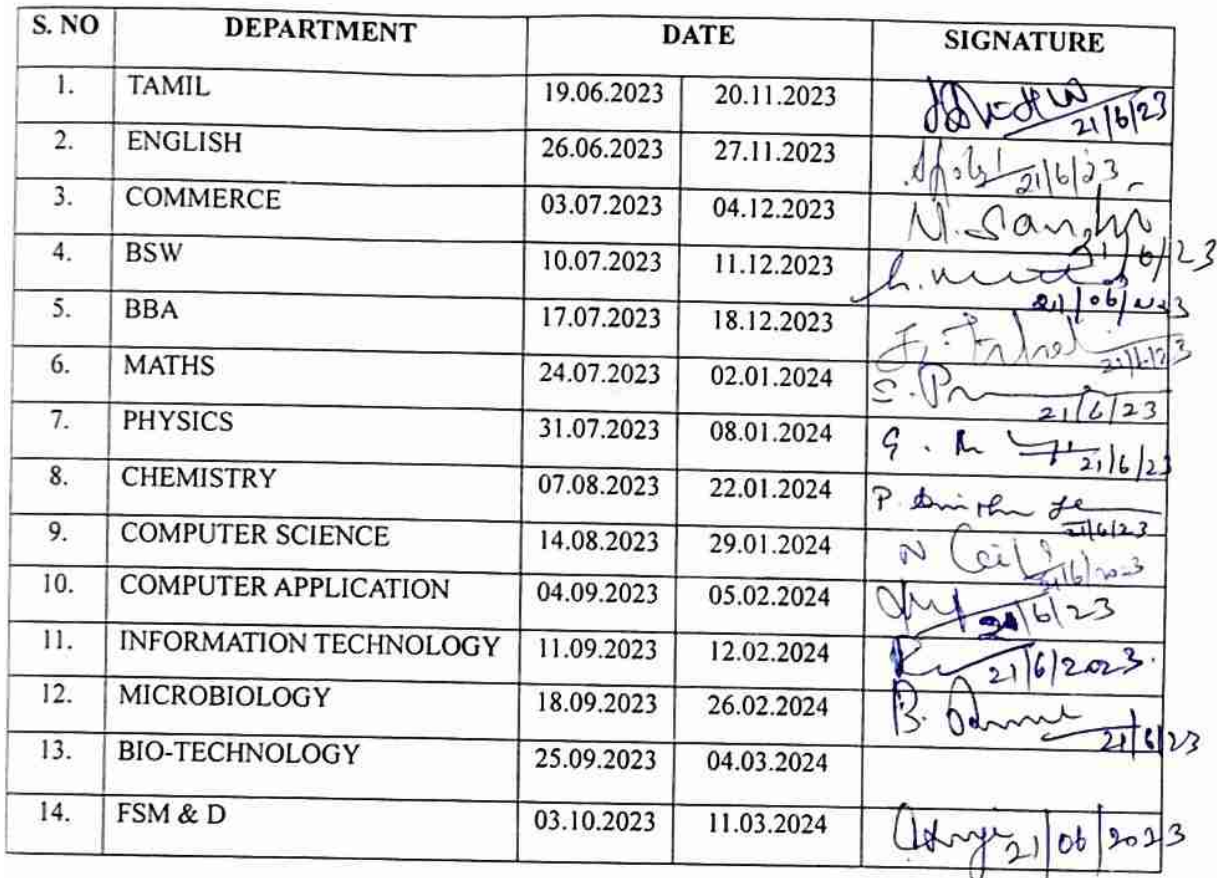 S. NO DEPARTMENT DATE SIGNATURE
1. TAMIL 19.06.2023 20.11.2023 21/6/23
2. ENGLISH 26.06.2023 27.11.2023 21/6/23
3. COMMERCE 03.07.2023 04.12.2023 21/6/23
4. BSW 10.07.2023 11.12.2023 21/06/2023
5. BBA 17.07.2023 18.12.2023
6. MATHS 24.07.2023 02.01.2024 21/6/23
7. PHYSICS 31.07.2023 08.01.2024 21/6/23
8. CHEMISTRY 07.08.2023 22.01.2024 21/6/23
9. COMPUTER SCIENCE 14.08.2023 29.01.2024 21/6/2023
10. COMPUTER APPLICATION 04.09.2023 05.02.2024 21/6/23
11. INFORMATION TECHNOLOGY 11.09.2023 12.02.2024 21/6/2023.
12. MICROBIOLOGY 18.09.2023 26.02.2024 21/6/23
13. BIO-TECHNOLOGY 25.09.2023 04.03.2024
14. FSM & D 03.10.2023 11.03.2024 21/06/2023